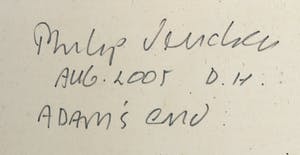 Philip
AUG. 2005 D.H.
ADAM'S END